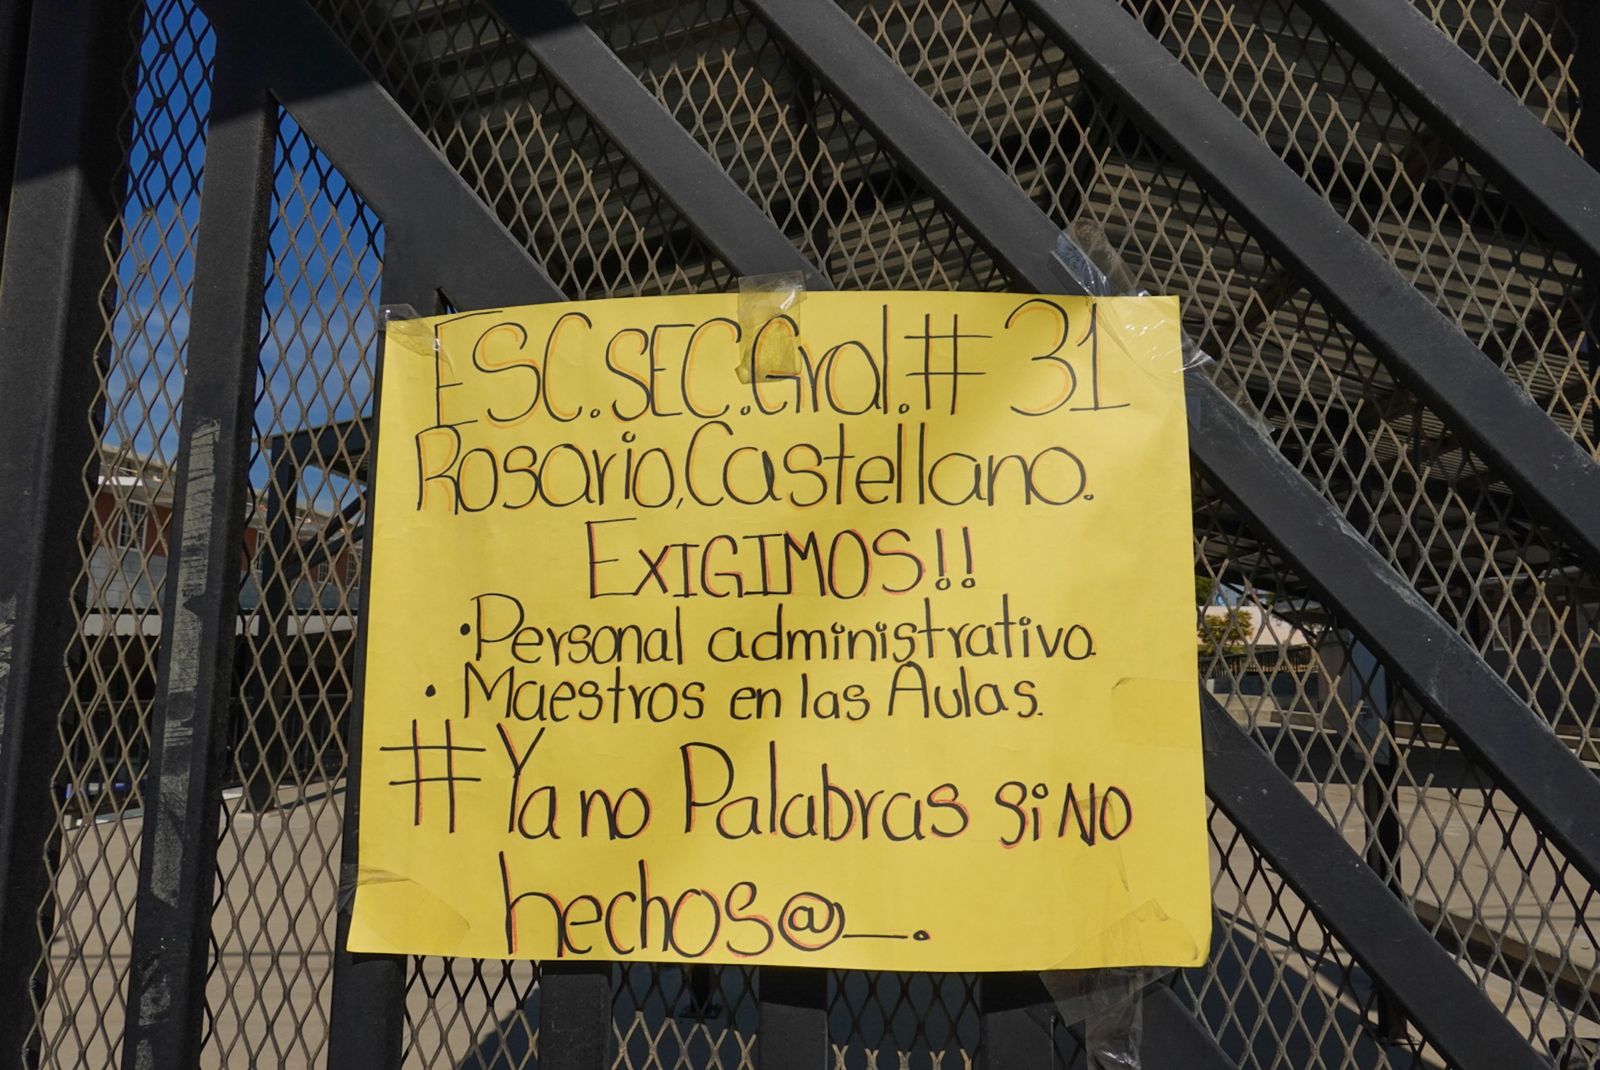 ESC.SEC.Gral.# 31
Rosario,Castellano.
EXIGIMOS!!
•Personal administrativo.
• Maestros en las Aulas.
#Ya no Palabras si NO
hechos@_.